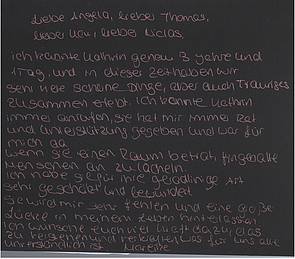 Liebe Angela, lieber Thomas,
lieber Uli, lieber Niclas,
ich kannte Kathrin genau 3 Jahre und
1 Tag, und in dieser Zeit haben wir
sehr viele schöne Dinge, aber auch Trauriges
zusammen erlebt. Ich konnte Kathrin
immer anrufen, sie hat mir immer Rat
und Unterstützung gegeben und war für
mich da
wenn sie einen Raum betrat, fingen alle
Menschen an zu lächeln.
Ich habe ihre geradlinige Art
sehr geschätzt und bewundert
Sie wird mir sehr fehlen und eine große
Lücke in meinem Leben hinterlassen
Ich wünsche euch viel Kraft dazu, das
zu und was für uns alle
ist